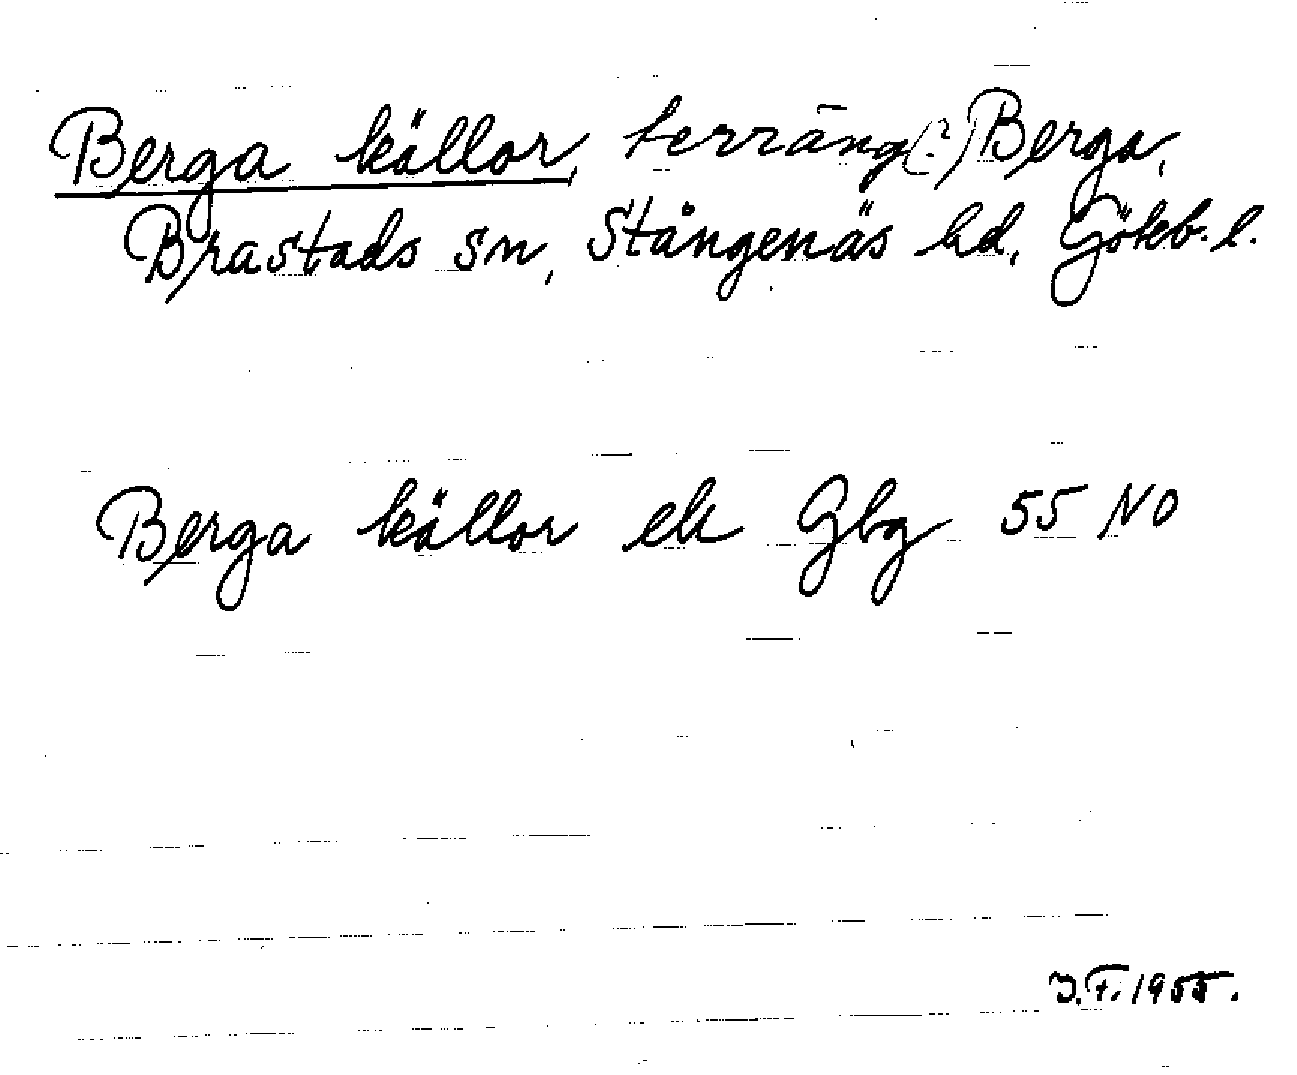 Berga källor, terräng(?) Berga,
Brastads sn, Stångenäs hd, Göteb. l.
Berga källor ek Gbg 55 NO
J.F. 1955.